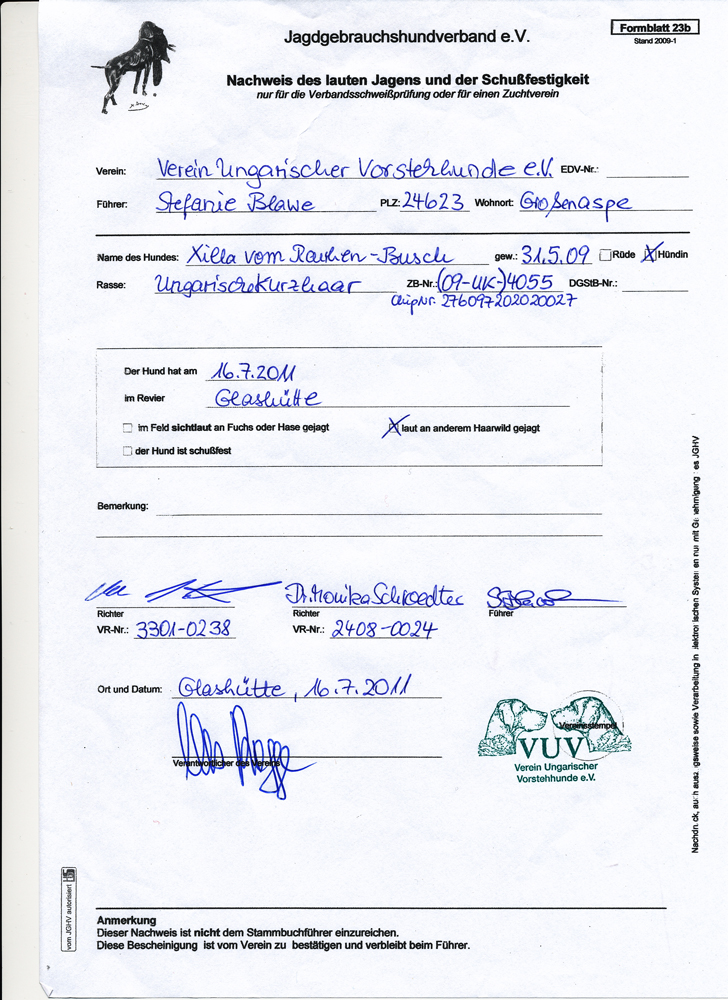 Jagdgebrauchshundverband e.V.
Formblatt 23b
Stand 2009-1
Nachweis des lauten Jagens und der Schußfestigkeit
nur für die Verbandsschweißprüfung oder für einen Zuchtverein
Verein: Verein Ungarischer Vorstehhunde e.V. EDV-Nr.:
Führer: Stefanie Blawe PLZ: 24623 Wohnort: Großenaspe
Name des Hundes: Xilla vom Rauhen-Busch gew.: 31.5.09 Rüde Hündin
Rasse: Ungarisch Kurzhaar ZB-Nr.: (09-UK-)4055 DGStB-Nr.:
ChipNr. 276097202020027
Der Hund hat am 16.7.2011
im Revier Glashütte
im Feld sichtlaut an Fuchs oder Hase gejagt laut an anderem Haarwild gejagt
der Hund ist schußfest
Bemerkung:
Dr. Monika Schroedter
Richter Richter Führer
VR-Nr.: 3301-0238 VR-Nr.: 2408-0024
Ort und Datum: Glashütte, 16.7.2011
Verantwortlicher des Vereins
Vereinsstempel
VUV
Verein Ungarischer
Vorstehhunde e.V.
Anmerkung
Dieser Nachweis ist nicht dem Stammbuchführer einzureichen.
Diese Bescheinigung ist vom Verein zu bestätigen und verbleibt beim Führer.
vom JGHV autorisiert
Nachdruck, auch auszugsweise sowie Verarbeitung in elektronischen Systemen nur mit Genehmigung des JGHV